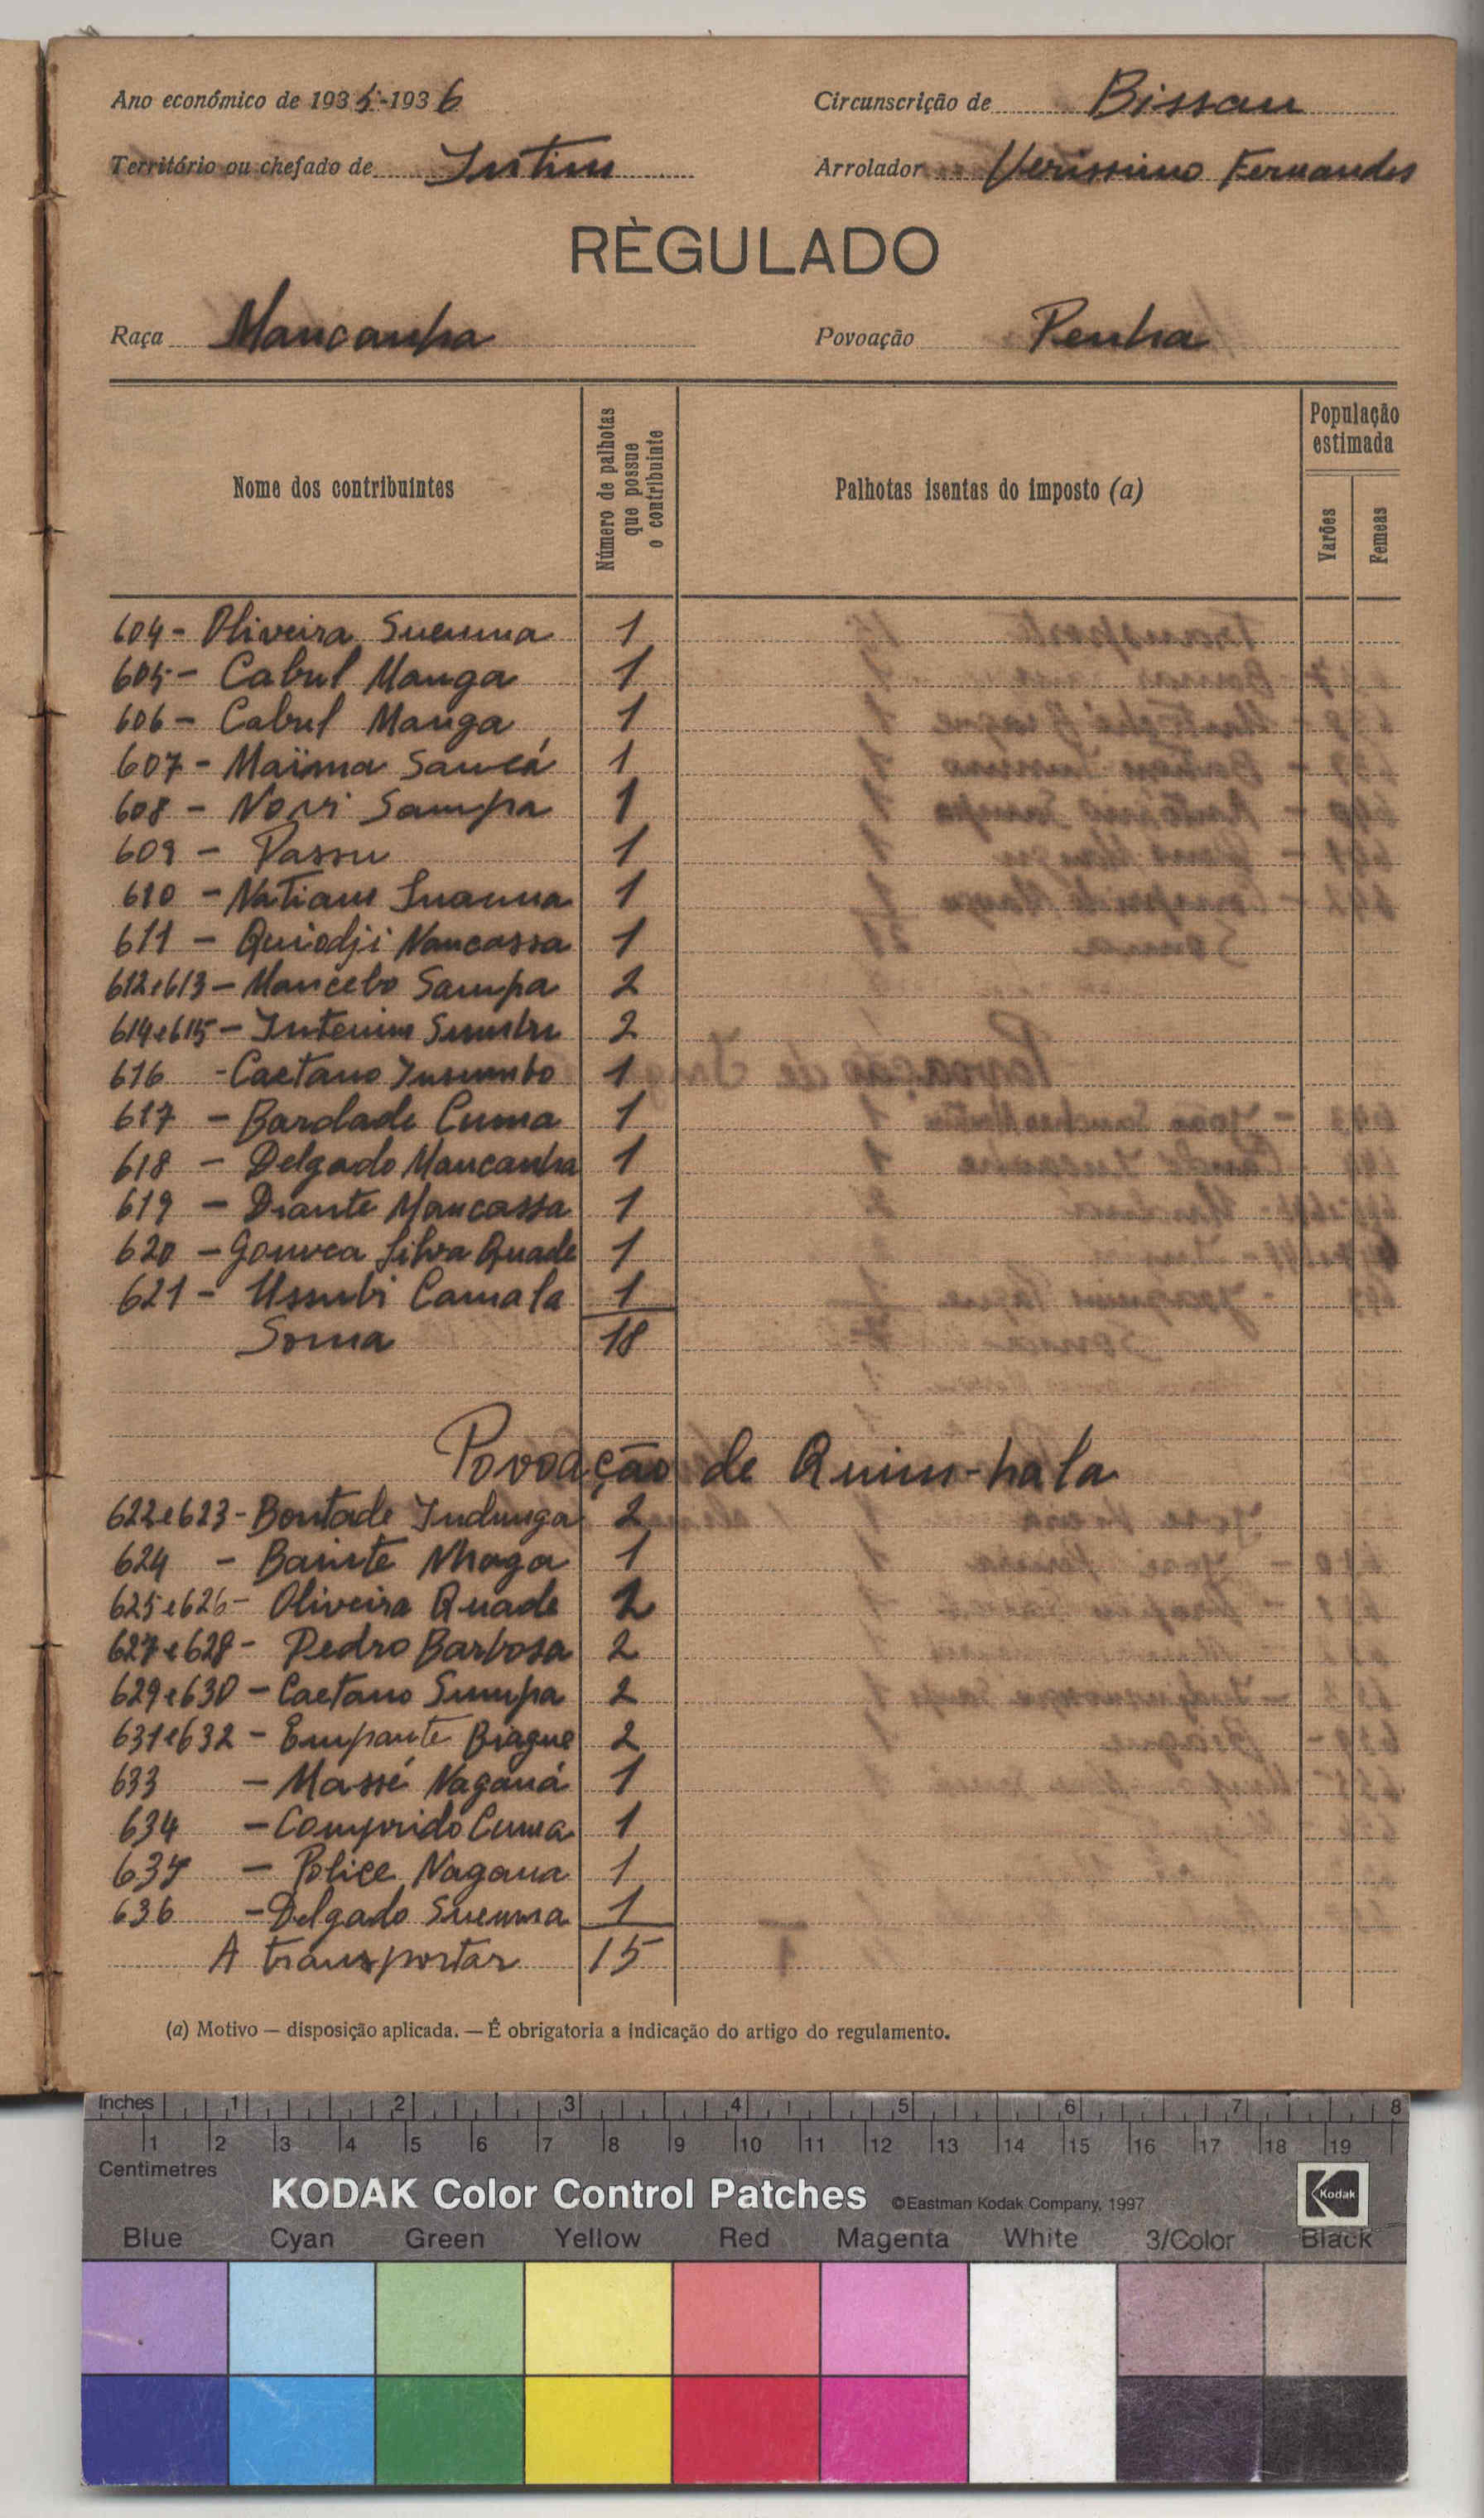 Ano económico de 1935-1936
Circunscrição de Bissau
Território ou chefado de Intim
Arrolador Veríssimo Fernandes
RÈGULADO
Raça Mancanha
Povoação Penha
Nome dos contribuintes
Número de palhotas que possue o contribuinte
Palhotas isentas do imposto (a)
População estimada
Varões
Femeas
604 - Oliveira Suemma 1
605 - Cabul Manga 1
606 - Cabul Manga 1
607 - Maïma Sancá 1
608 - Novi Sampa 1
609 - Passu 1
610 - Natiam 1
611 - Quiodji Nancassa 1
612 e 613 - Mancebo Sampa 2
614 e 615 - Intenim 2
616 - Caetano Insumbo 1
617 - Bardade Cuma 1
618 - Delgado Mancanha 1
619 - Diante Mancassa 1
620 - Gouvea Silva Quade 1
621 - Ussubi Camala 1
Soma 18
Povoação de Quim-hala
622 e 623 - Bontade Indunga 2
624 - Bainte Nhaga 1
625 e 626 - Oliveira Quade 2
627 e 628 - Pedro Barbosa 2
629 e 630 - Caetano Sumpa 2
631 e 632 - Empante Biague 2
633 - Massé Naganá 1
634 - Comprido Cuma 1
635 - Police Nagana 1
636 - Delgado Suemma 1
A transportar 15
(a) Motivo — disposição aplicada. — É obrigatoria a indicação do artigo do regulamento.
Inches 1 2 3 4 5 6 7 8
1 2 3 4 5 6 7 8 9 10 11 12 13 14 15 16 17 18 19
Centimetres
KODAK Color Control Patches ©Eastman Kodak Company, 1997 Kodak
Blue Cyan Green Yellow Red Magenta White 3/Color Black